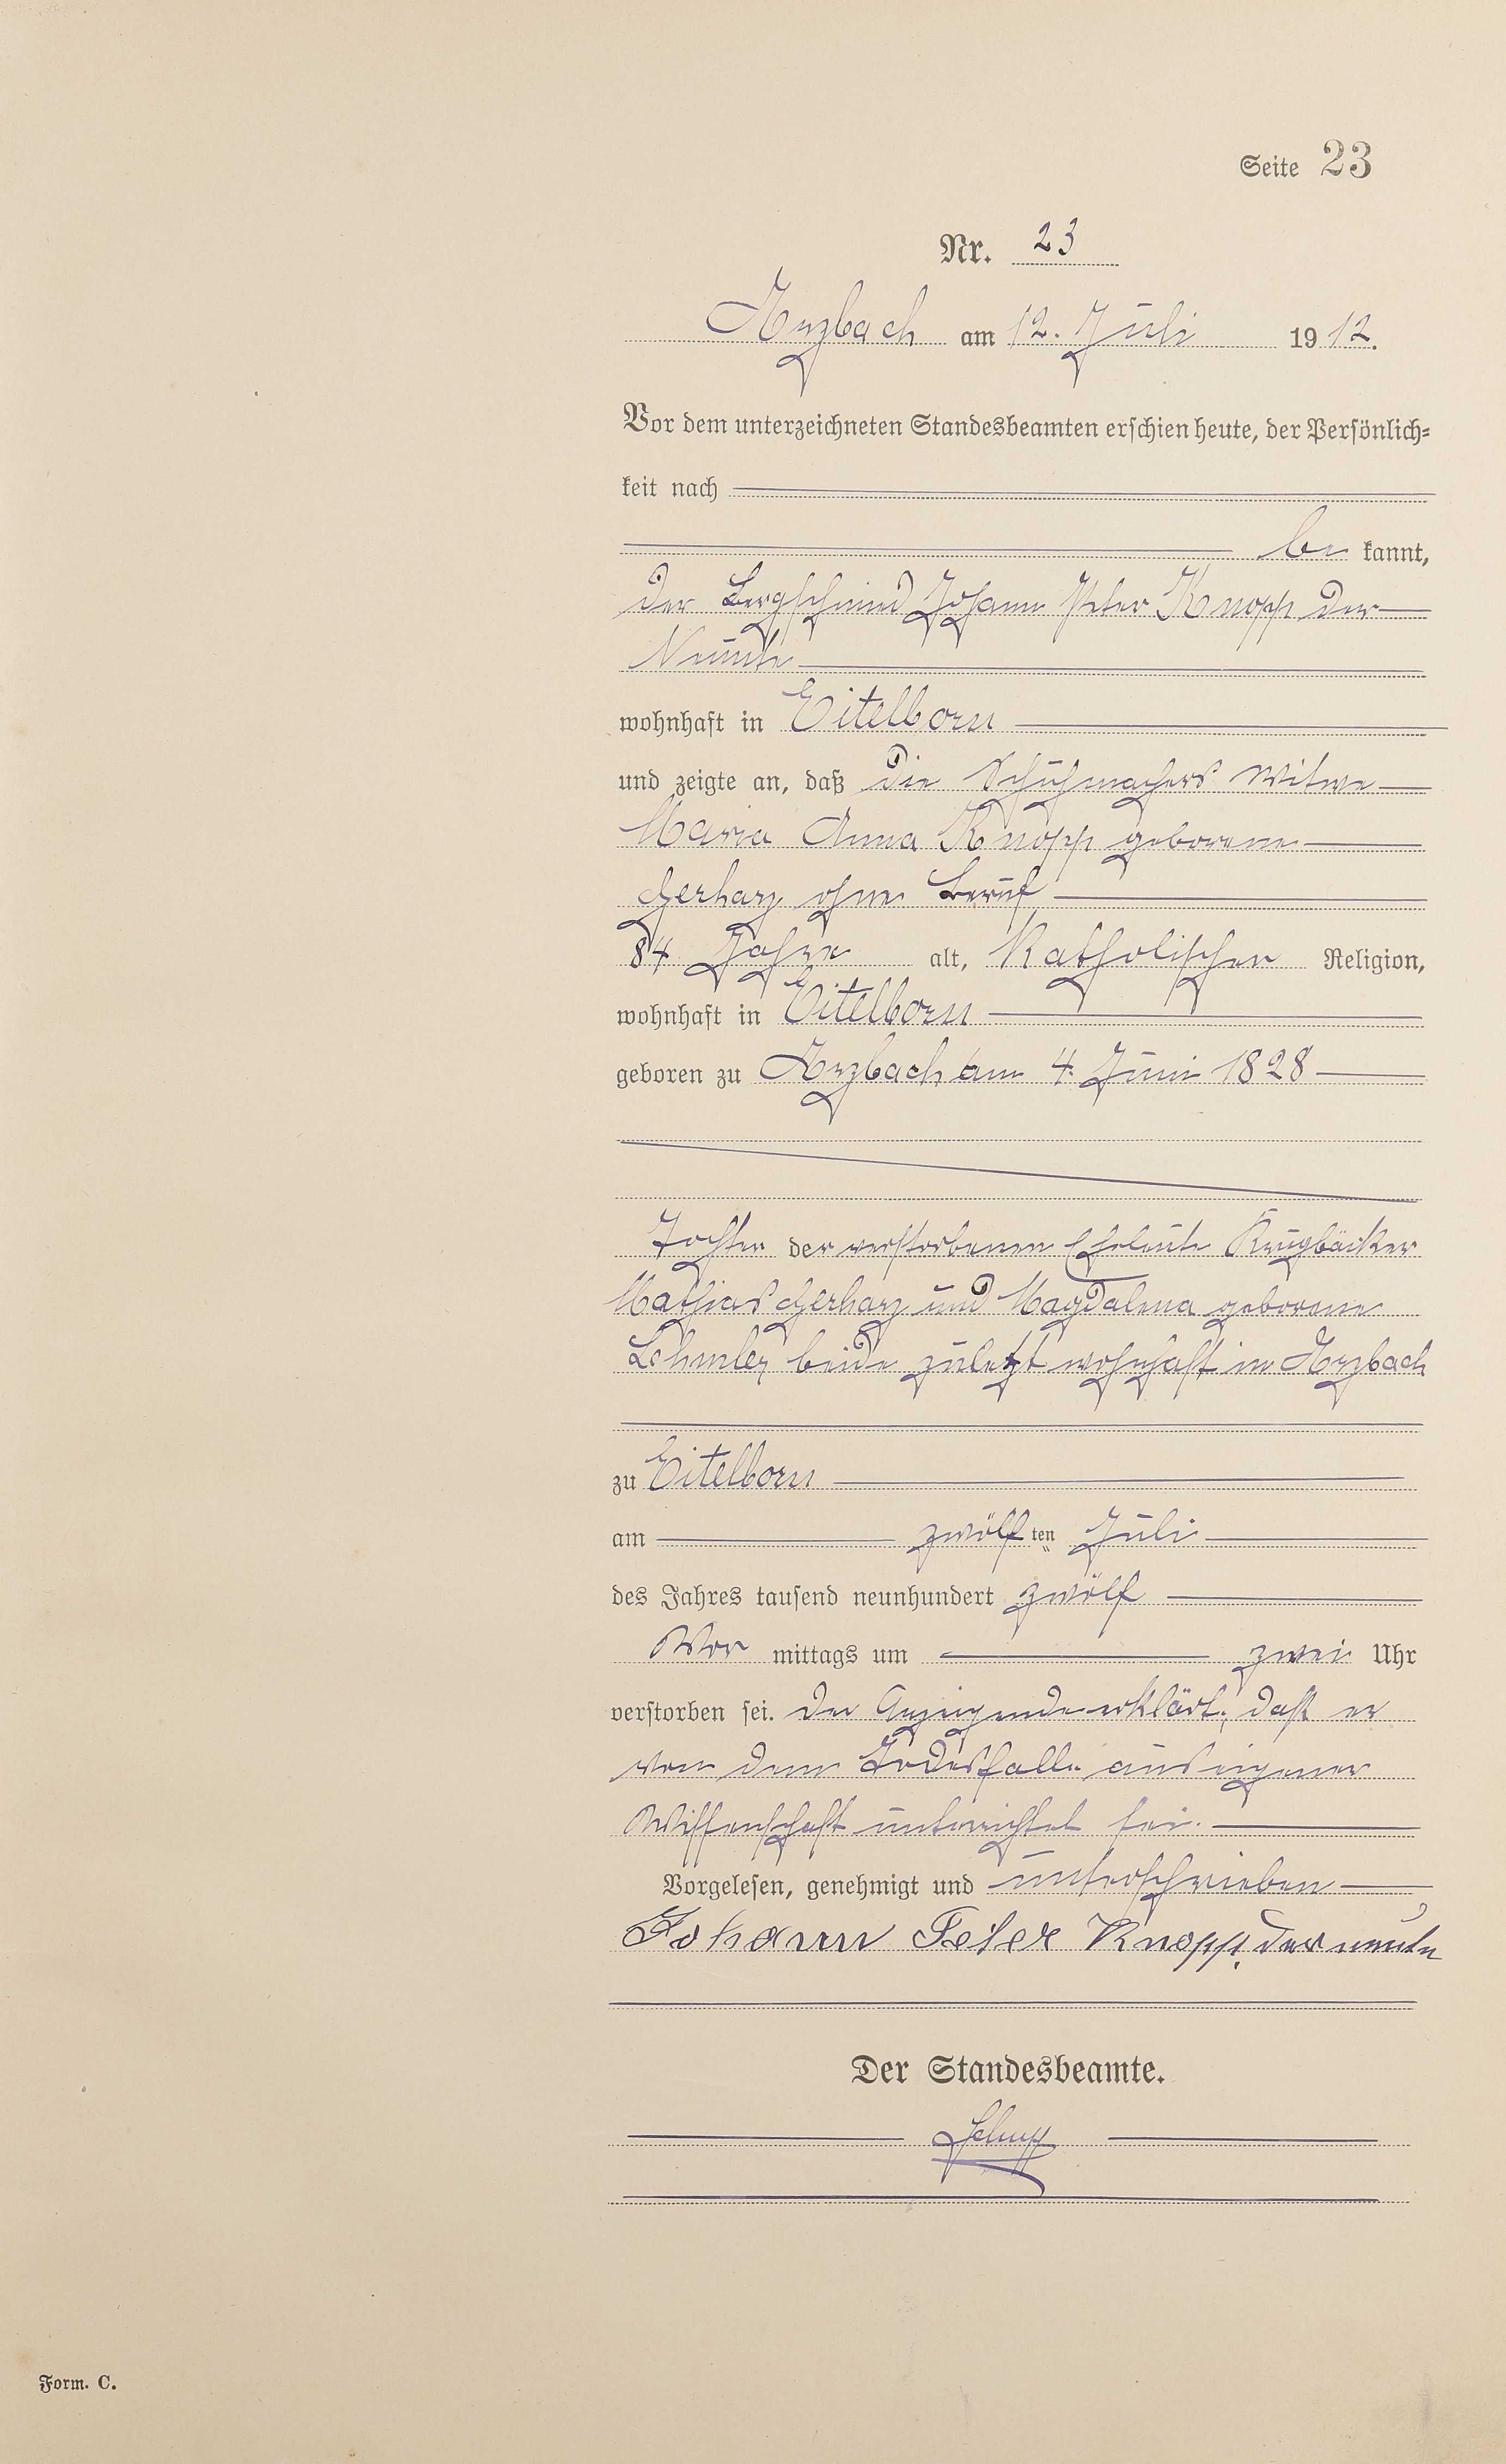 Seite 23
Nr. 23
Arzbach am 12. Juli 1912.
Vor dem unterzeichneten Standesbeamten erschien heute, der Persönlich-
keit nach
be kannt,
der Bergschmied Johann Peter Knopp der
Neunte
wohnhaft in Eitelborn
und zeigte an, daß die Schuhmachers Witwe
Maria Anna Knopp geborene
Gerharz ohne Beruf
84 Jahre alt, Katholischer Religion,
wohnhaft in Eitelborn
geboren zu Arzbach am 4. Juni 1828
Tochter der verstorbenen Eheleute Krugbäcker
Mathias Gerharz und Magdalena geborene
beide zuletzt wohnhaft in Arzbach
zu Eitelborn
am zwölf ten Juli
des Jahres tausend neunhundert zwölf
Vor mittags um zwei Uhr
verstorben sei. Der Anzeigende erklärt, daß er
von dem Todesfalle aus eigener
Wissenschaft unterrichtet sei.
Vorgelesen, genehmigt und unterschrieben
Johann Peter Knopp, der neunte
Der Standesbeamte.
Form. C.